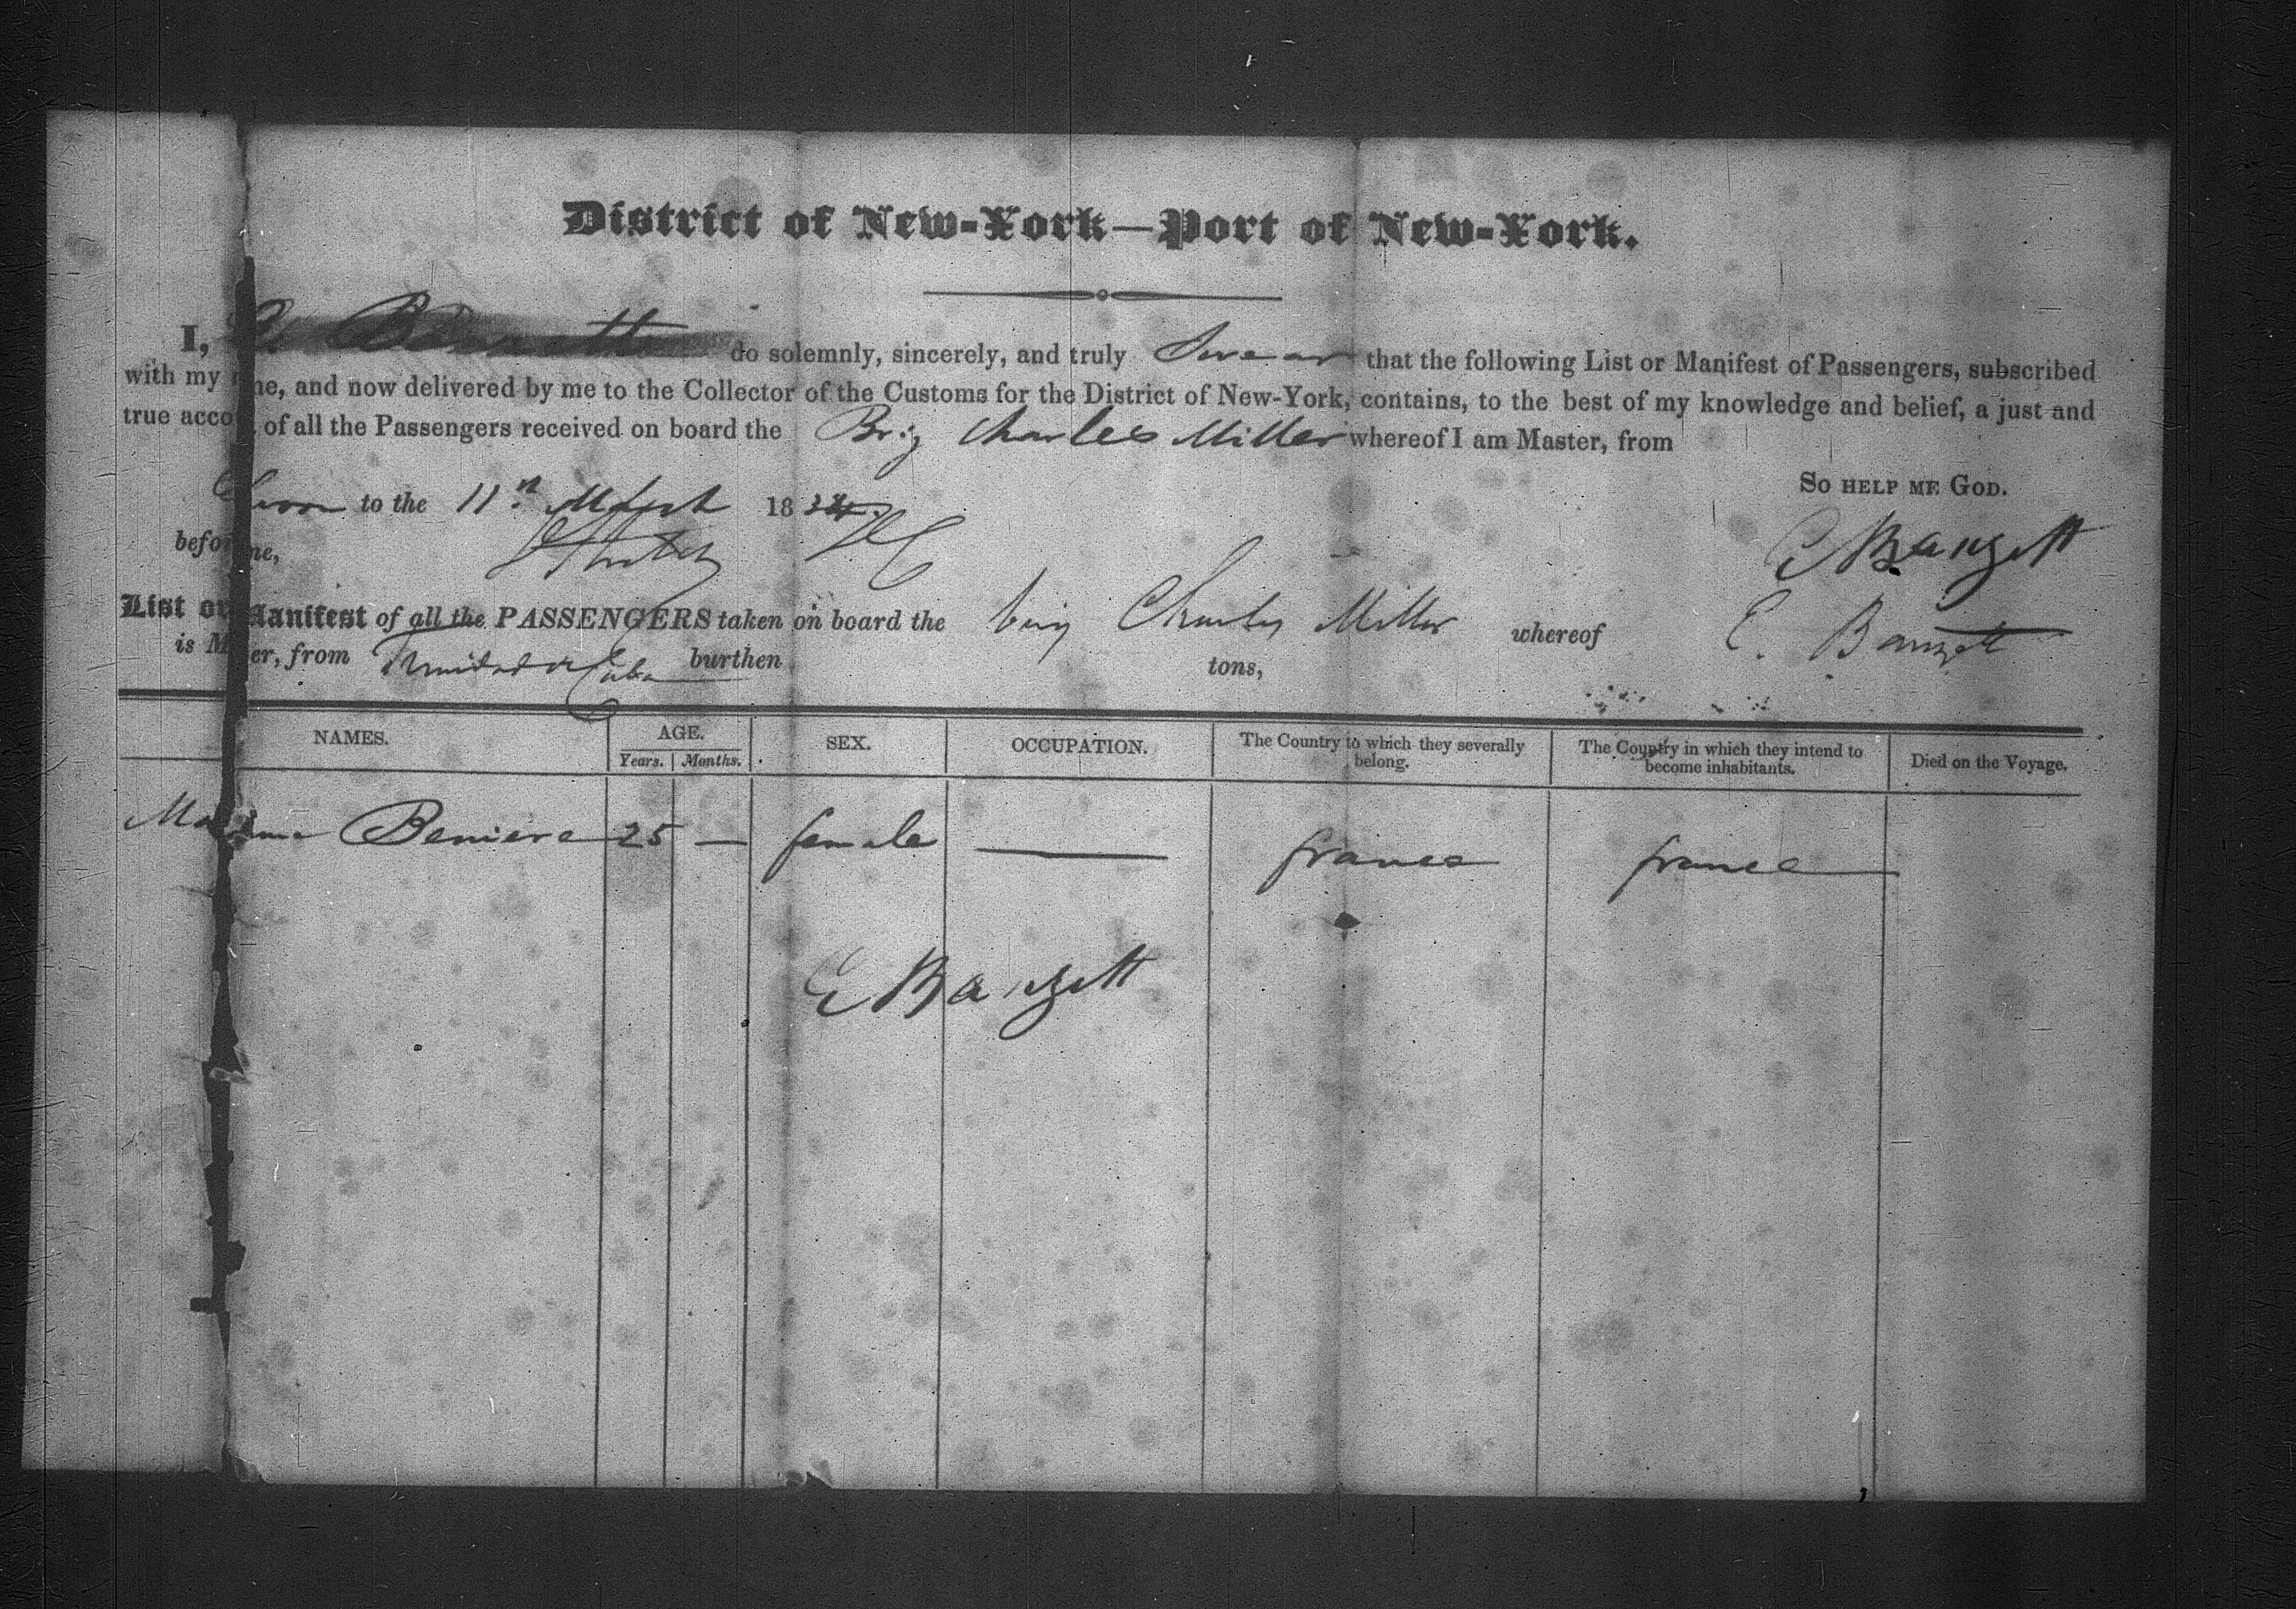 District of New-York—Port of New-York.
I, do solemnly, sincerely, and truly Swear that the following List or Manifest of Passengers, subscribed
with my me, and now delivered by me to the Collector of the Customs for the District of New-York, contains, to the best of my knowledge and belief, a just and
true acco of all the Passengers received on board the Brig Charles Miller whereof I am Master, from
So HELP ME GOD.
Sworn to the 11th 18
before me,
E Banzett
List or Manifest of all the PASSENGERS taken on board the brig Charles Miller whereof E. Banzett
is M er, from Trinidad de Cuba burthen tons,
NAMES. AGE. SEX. OCCUPATION. The Country to which they severally belong. The Country in which they intend to become inhabitants. Died on the Voyage.
Years. Months.
Madama Beniere 25 — female — france france
E Banzett